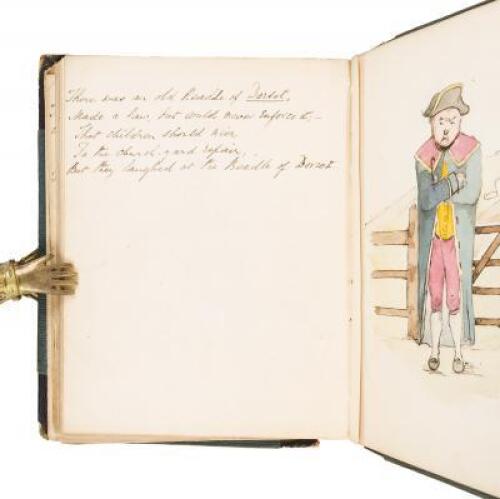 There was an old Beadle of Dorset,
Made a law, but could never enforce it; –
That children should ne'er
To the church-yard repair,
But they laughed at the Beadle of Dorset.